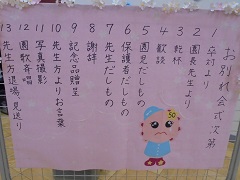 お別れ会式次第
1 卒対より
2 園長先生より
3 乾杯
4 歓談
5 園児だしもの
6 保護者だしもの
7 先生だしもの
8 謝辞
9 記念品贈呈
10 先生方よりお言葉
11 写真撮影
12 園歌斉唱
13 先生方退場、見送り